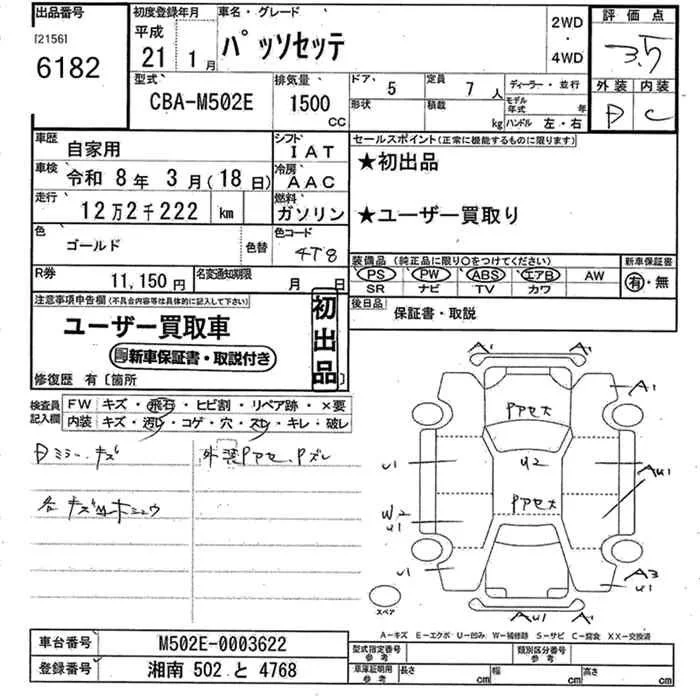 出品番号
[2156]
6182
初度登録年月
平成
21 1月
車名・グレード
パッソセッテ
2WD
・
4WD
評価点
3.5
外装 内装
D C
型式
CBA-M502E
排気量
1500
CC
ドア 5
定員 7人
形状
積載 kg
ディーラー・並行
モデル年式 年
ハンドル 左・右
車歴 自家用
シフト IAT
車検 令和 8年 3月(18日)
冷房 AAC
走行 12万2千222 km
燃料 ガソリン
色 ゴールド
色替
色コード
4T8
R券 11,150円
名変通知期限 月 日
セールスポイント(正常に機能するものに限ります)
★初出品
★ユーザー買取り
装備品(純正品に限り○をつけてください)
PS PW ABS エアB AW
SR ナビ TV カワ
新車保証書
有・無
後日品 保証書・取説
注意事項申告欄(不具合内容等は具体的に記入して下さい)
ユーザー買取車
新車保証書・取説付き
初出品
修復歴 有〔箇所 〕
検査員記入欄
FW キズ・飛石・ヒビ割・リペア跡・×要
内装 キズ・汚れ・コゲ・穴・スレ・キレ・破レ
Dミラー、キズ
外装Pアセ、Pズレ
各キズ
A' A'
A1
Pアセ大
U1
U2
AU1
Pアセ大
W2
U1
U1
A3
U1
AU1 A'
スペア
A-キズ E-エクボ U-凹み W-補修跡 S-サビ C-腐食 XX-交換済
車台番号 M502E-0003622
登録番号 湘南 502 と 4768
型式指定番号
参考
類別区分番号
参考
車庫証明用
参考
長さ cm
幅 cm
高さ cm